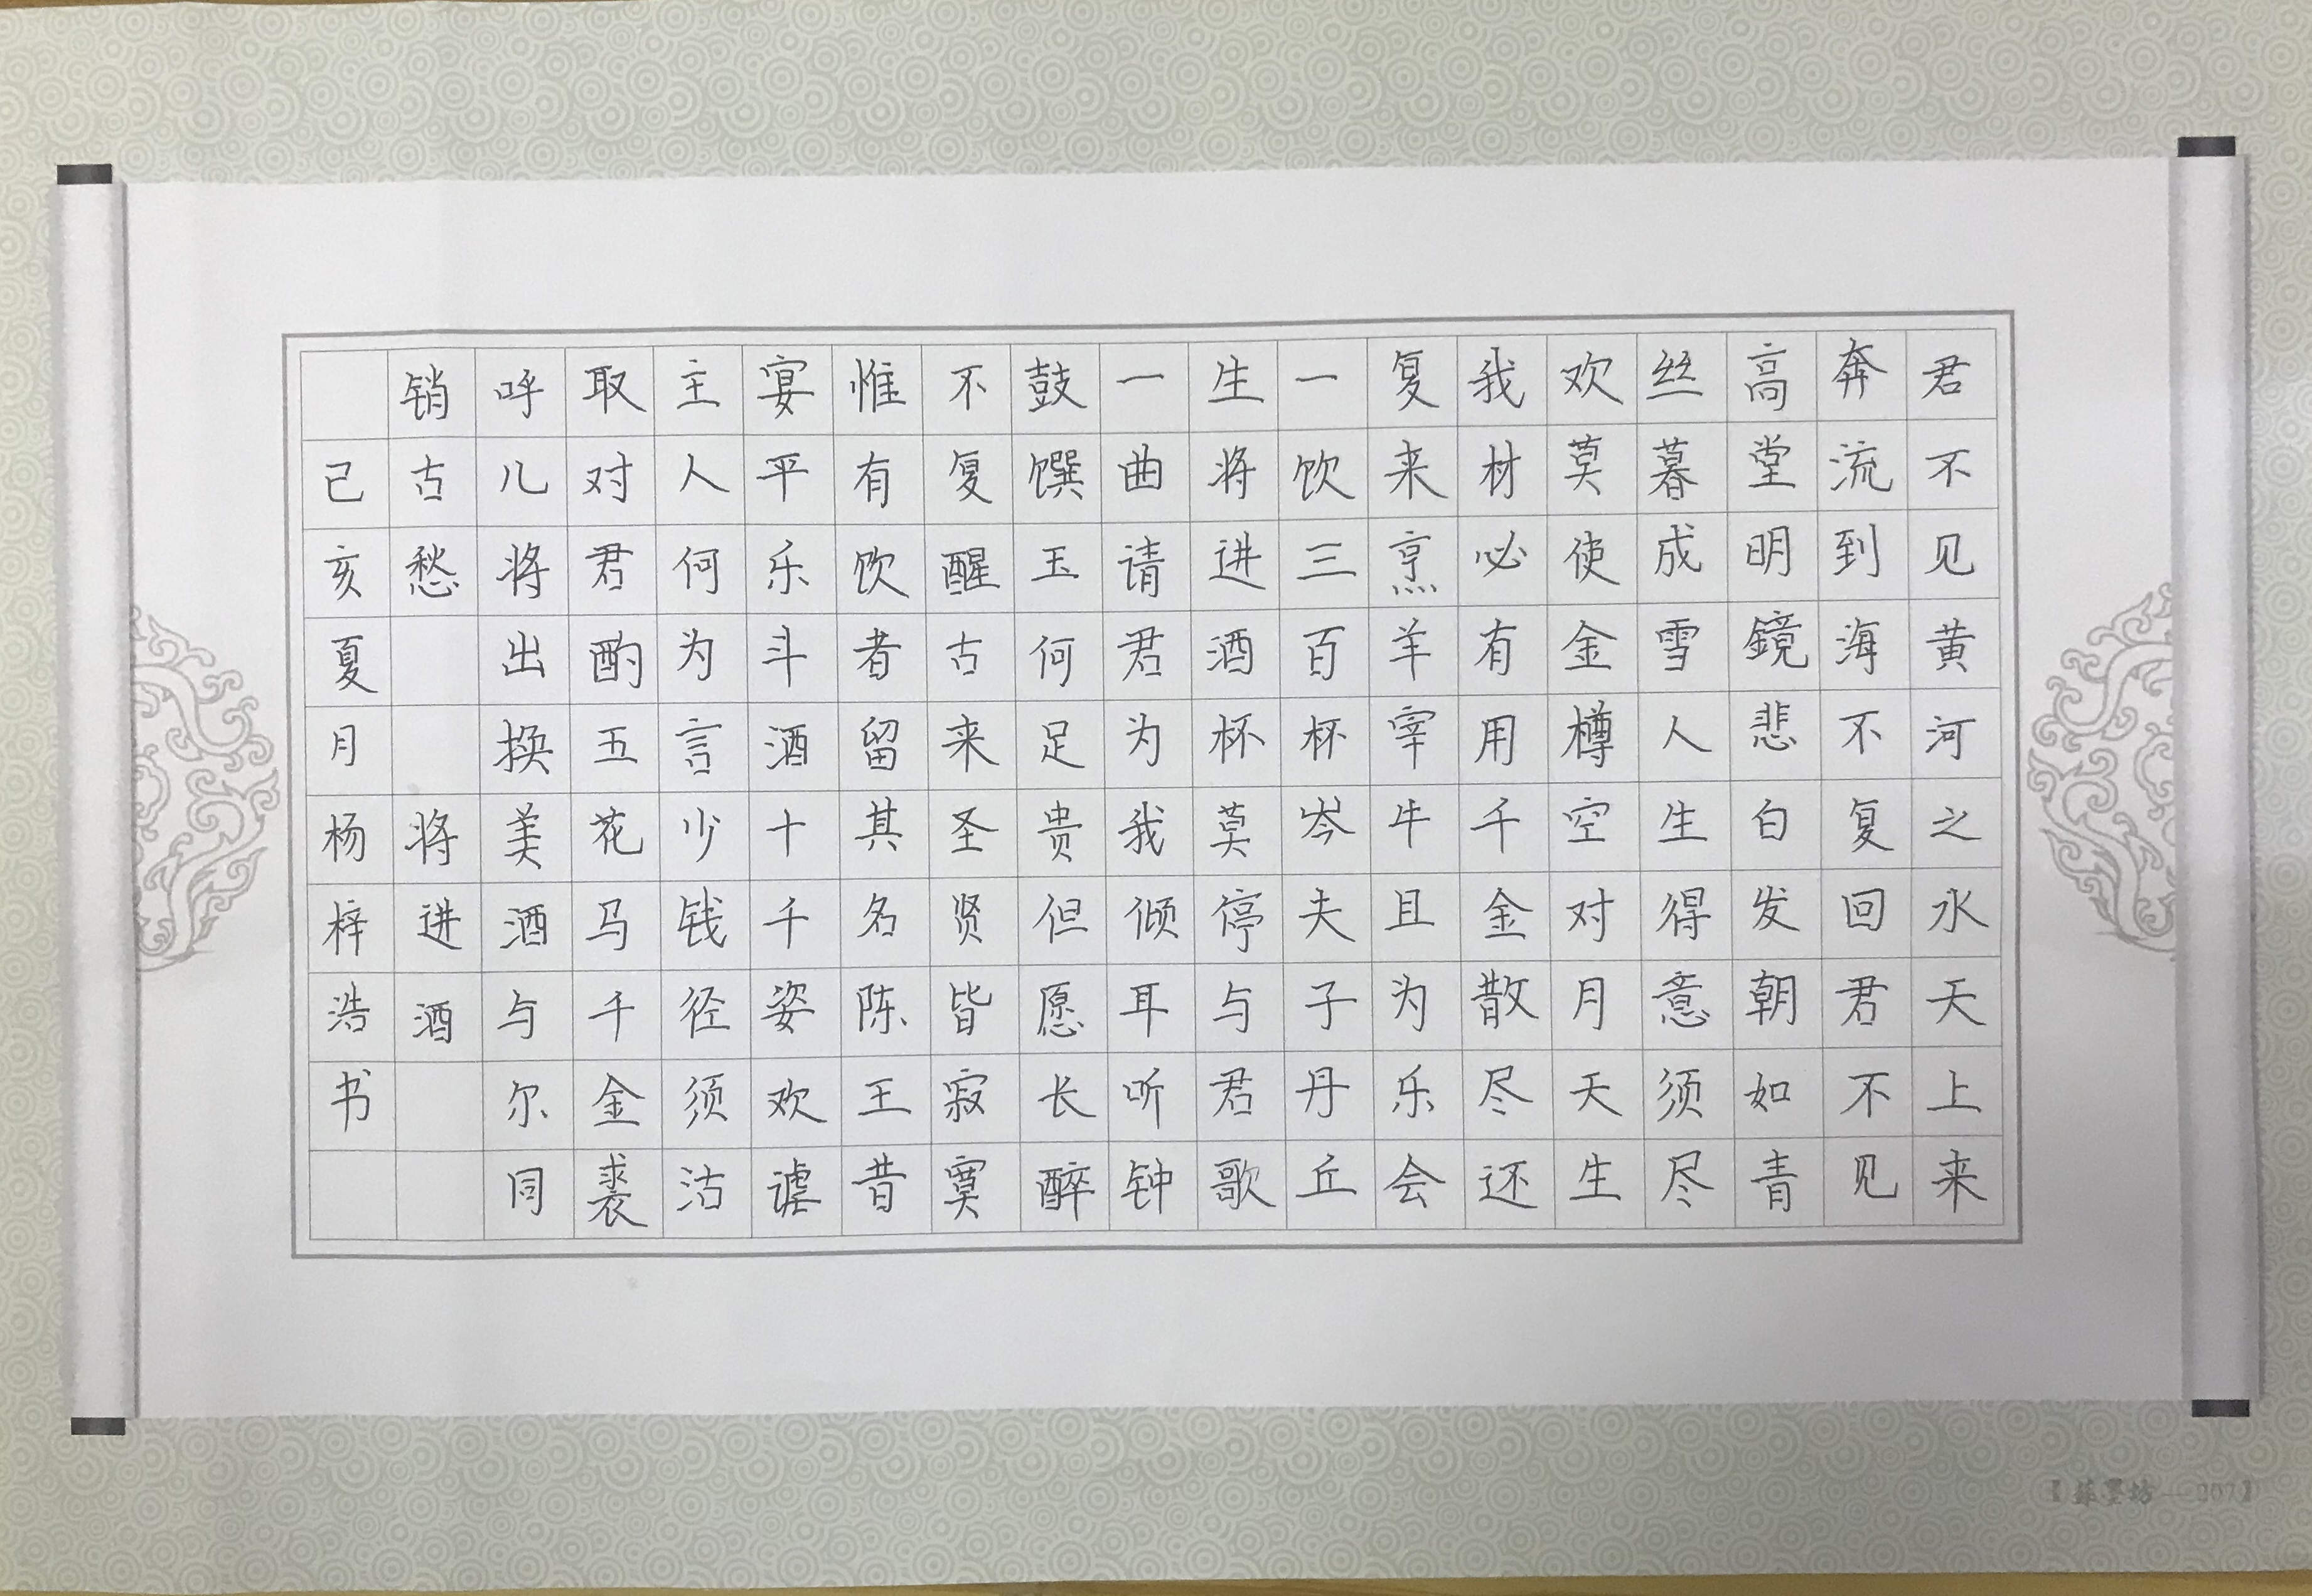 君不见黄河之水天上来
奔流到海不复回君不见
高堂明鏡悲白发朝如青
丝暮成雪人生得意须尽
欢莫使金樽空对月天生
我材必有用千金散尽还
复来烹羊宰牛且为乐会
一饮三百杯岑夫子丹丘
生将进酒杯莫停与君歌
一曲请君为我倾耳听钟
鼓馔玉何足贵但愿长醉
不复醒古来圣贤皆寂寞
惟有饮者留其名陈王昔
宴平乐斗酒十千姿欢谑
主人何为言少钱径须沽
取对君酌五花马千金裘
呼儿将出换美酒与尔同
销古愁 将进酒
己亥夏月杨梓浩书